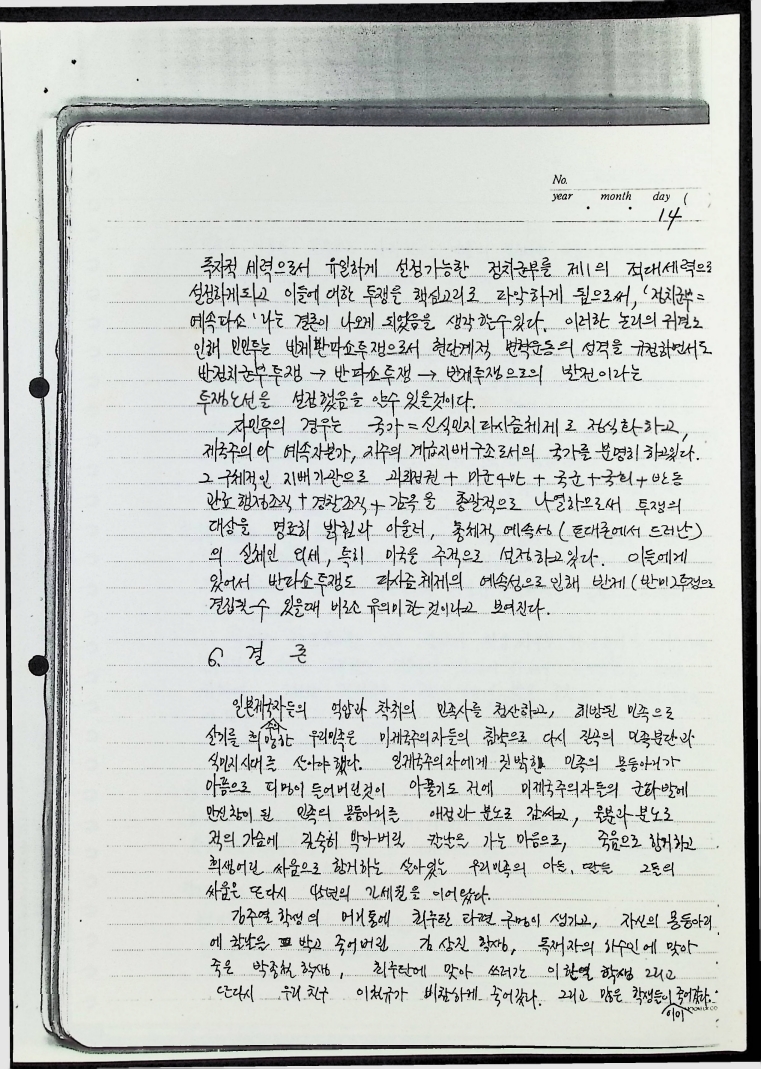 No.
year . month . day (
14
독자적 세력으로서 유일하게 설정가능한 정치군부를 제1의 적대세력으로
설정하게되고 이들에 대한 투쟁을 핵심고리로 파악하게 됨으로써, '정치군부=
예속파쇼' 라는 결론이 나오게 되었음을 생각할수있다. 이러한 논리의 귀결로
인해 민민투는 반제반파쇼투쟁으로서 현단계적 변혁운동의 성격을 규정하면서도
반정치군부투쟁 → 반파쇼투쟁 → 반제투쟁으로의 발전이라는
투쟁노선을 설정했음을 알수 있을것이다.
자민투의 경우는 국가 = 신식민지파시즘체제로 정식화하고,
제국주의와 예속자본가, 지주의 계급지배구조로서의 국가를 분명히 하고있다.
그 구체적인 지배기관으로 괴뢰정권 + 미군4만 + 국군 + 국회 + 반동
관료행정조직 + 경찰조직 + 감옥을 총괄적으로 나열하므로써 투쟁의
대상을 명료히 밝힘과 아울러, 총체적 예속성 (토대론에서 드러난)
의 실체인 외세, 특히 미국을 주적으로 설정하고있다. 이들에게
있어서 반파쇼투쟁도 파시즘체제의 예속성으로인해 반제(반미)투쟁으로
결집될수 있을때 비로소 유의미한것이라고 보여진다.
6. 결 론
일본제국주의자들의 억압과 착취의 민족사를 청산하고, 해방된 민족으로
살기를 희망한 우리민족은 미제국주의자들의 침략으로 다시 질곡의 민족분단과
식민지시대를 살아야 했다. 일제국주의자에게 짓밟힌 민족의 몽둥아리가
아픔으로 피멍이 들어버린것이 아물기도 전에 미제국주의자들의 군화발에
만신창이 된 민족의 몽둥아리를 애정과 분노로 감싸고, 울분과 분노로
적의 가슴에 깊숙히 박아버릴 칼날을 가는 마음으로, 죽음으로 항거하고
희생어린 싸움으로 항거하는 살아있는 우리민족의 아들, 딸들 그들의
싸움은 또다시 42년의 긴세월을 이어왔다.
김주열 학생의 머리통에 최루탄 파편 구멍이 생기고, 자신의 몽둥아리
에 칼날을 박고 죽어버린 김상진 학생, 독재자의 하수인에 맞아
죽은 박종철 학생, 최루탄에 맞아 쓰러간 이한열 학생 그리고
또다시 우리친구 이철규가 비참하게 죽어갔다. 그리고 많은 학생들이 죽어갔다.